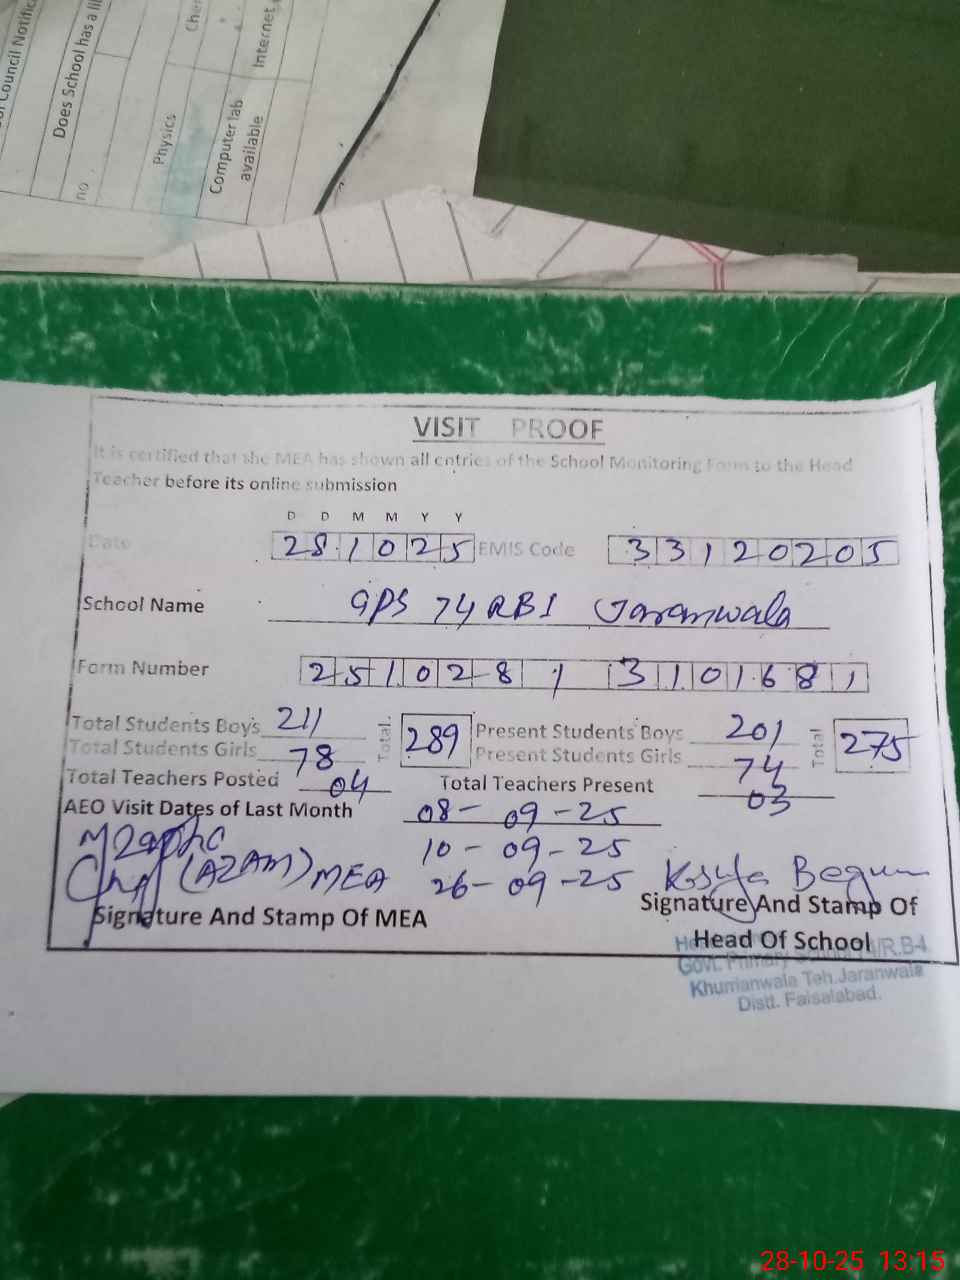 ol Council Notific
Does School has a li
no
Physics
Che
Computer lab
available
Internet
VISIT PROOF
It is certified that she MEA has shown all entries of the School Monitoring Form to the Head
Teacher before its online submission
D D M M Y Y
Date 281025 EMIS Code 33120205
School Name GPS 74 RB I Jaranwala
Form Number 2510281 3101681
Total Students Boys 211 Total 289 Present Students Boys 201 Total 275
Total Students Girls 78 Present Students Girls 74
Total Teachers Posted 04 Total Teachers Present 03
AEO Visit Dates of Last Month 08-09-25
10-09-25
(AZAM) MEA 26-09-25 Begum
Signature And Stamp Of MEA Signature And Stamp Of
Head Of School
Govt. Primary School 74/R.B-I
Khurrianwala Teh.Jaranwala
Distt. Faisalabad.
28-10-25 13:15